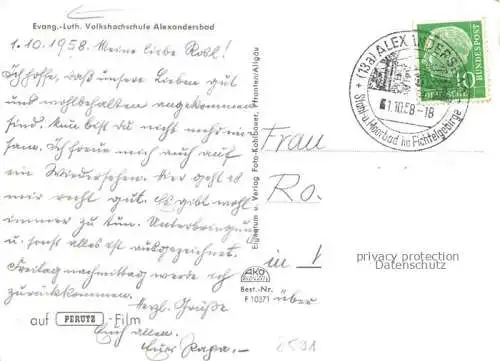 Evang.-Luth. Volkshochschule Alexandersbad
1.10.1958. Meine liebe Rosl!
Ich hoffe, daß unsere Lieben gut
und wohlbehalten angekommen
sind. Nun bist du nicht mehr so
allein. Ich freue mich auch auf
ein Wiedersehen. Hier geht es
mir recht gut. Es gibt wohl
immer zu tun. Unterbringung
u. sonst alles ist ausgezeichnet.
Freitag nachmittag werde ich
zurückkommen.
Herzl. Grüße
Euch allen.
Euer Papa.-
auf PERUTZ-Film
Eigentum u. Verlag Foto-Kohlbauer, Pfronten/Allgäu
AKO
Best.-Nr.
F 10371
(13a) ALEXANDERSBAD
-1.10.58-18
Stahl-u. Moorbad im Fichtelgebirge
10
DEUTSCHE
BUNDESPOST
Frau
Ro.
in
über
privacy protection
Datenschutz
8591